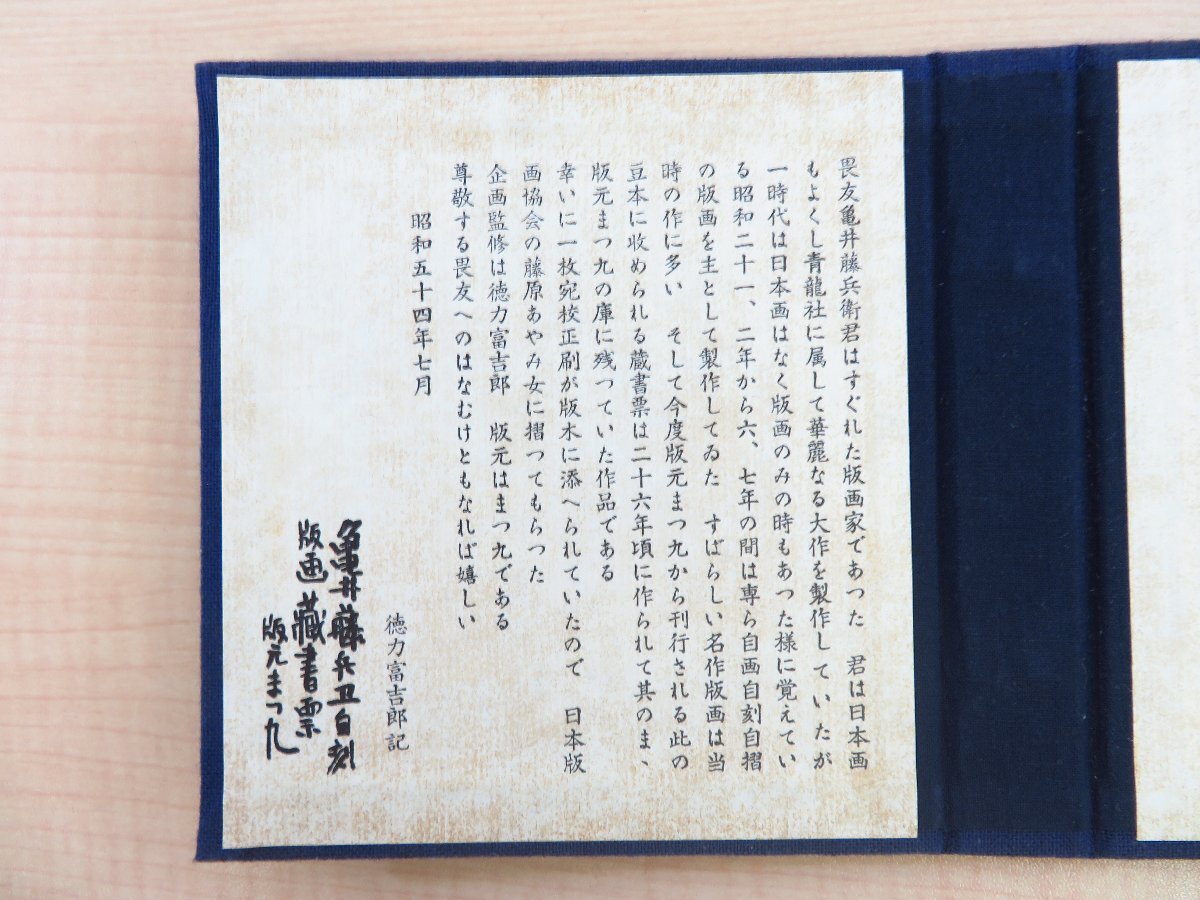 畏友亀井藤兵衛君はすぐれた版画家であつた　君は日本画
もよくし青龍社に属して華麗なる大作を製作していたが
一時代は日本画はなく版画のみの時もあつた様に覚えてい
る昭和二十一、二年から六、七年の間は専ら自画自刻自摺
の版画を主として製作してゐた　すばらしい名作版画は当
時の作に多い　そして今度版元まつ九から刊行される此の
豆本に收められる蔵書票は二十六年頃に作られて其のまゝ
版元まつ九の庫に残つていた作品である
幸いに一枚宛校正刷が版木に添へられていたので　日本版
画協会の藤原あやみ女に摺つてもらつた
企画監修は徳力富吉郎　版元はまつ九である
尊敬する畏友へのはなむけともなれば嬉しい
昭和五十四年七月
徳力富吉郎記
亀井藤兵卫自刻
版画藏書票
版元まつ九